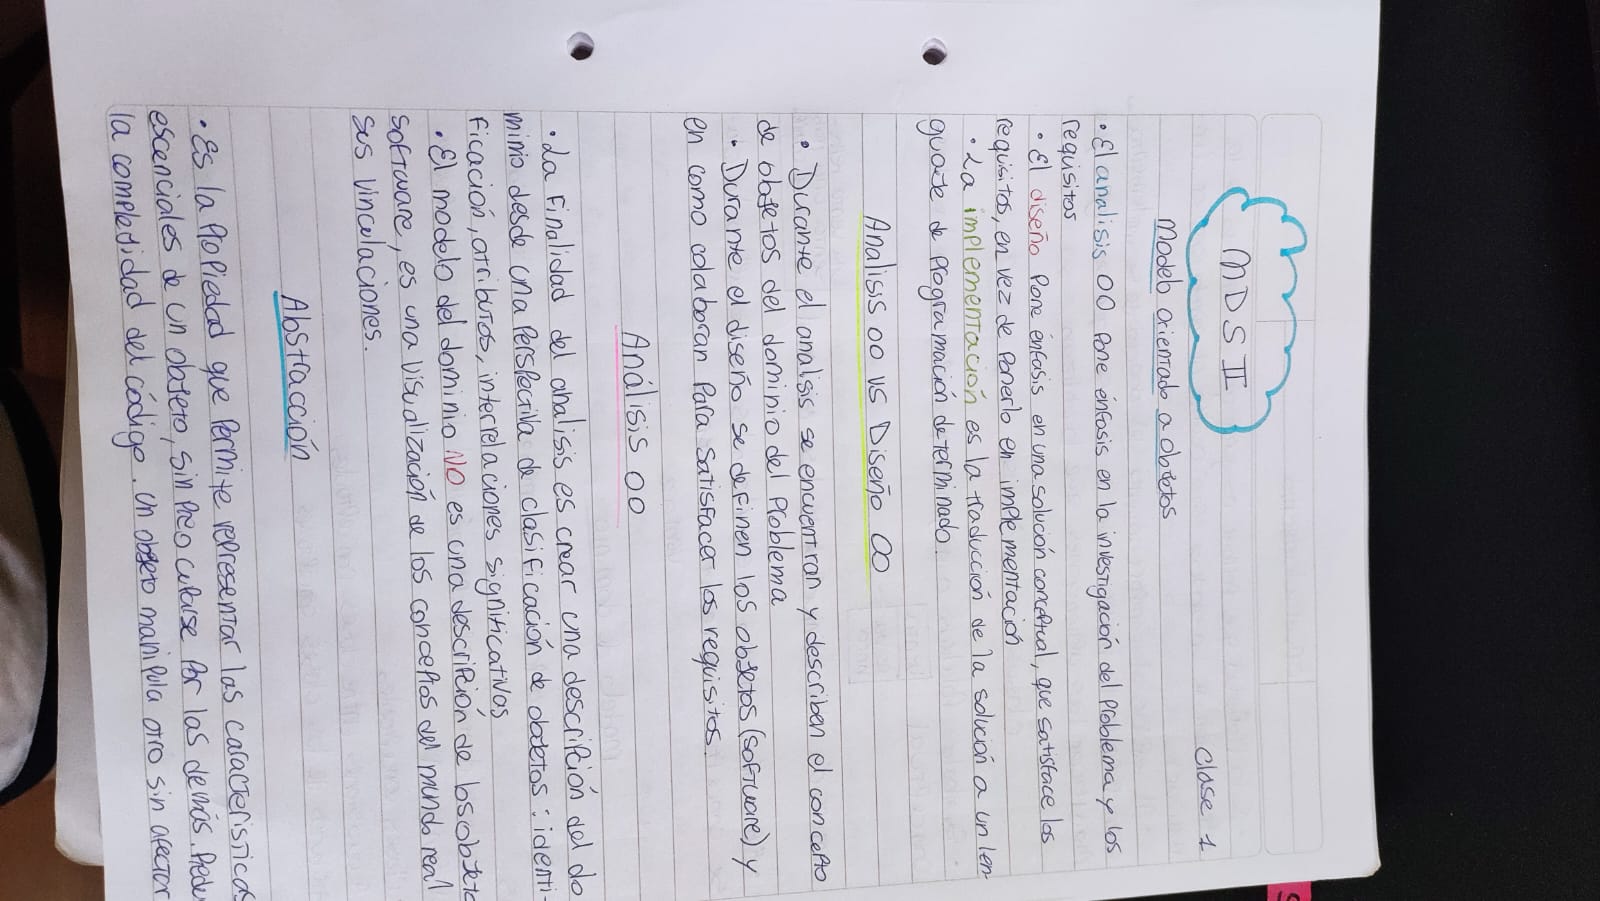 MDS II
Clase 1
Modelo orientado a objetos
• El analisis OO pone énfasis en la investigación del problema y los
requisitos
• El diseño pone énfasis en una solución conceptual, que satisface los
requisitos, en vez de ponerlo en implementación
• La implementación es la traducción de la solución a un len-
guaje de programación determinado.
Analisis OO VS Diseño OO
• Durante el analisis se encuentran y describen el concepto
de objetos del dominio del problema
• Durante el diseño se definen los objetos (software) y
en como colaboran para satisfacer los requisitos.
Análisis OO
• La finalidad del analisis es crear una descripción del do
minio desde una perspectiva de clasificación de objetos: identi-
ficación, atributos, interrelaciones significativas
• El modelo del dominio NO es una descripción de los objeto
software, es una visualización de los conceptos del mundo real
sus vinculaciones.
Abstracción
• Es la propiedad que permite representar las caracteristicas
escenciales de un objeto, sin preocuparse por las demás. Redu
la complejidad del código. Un objeto manipula otro sin afectar